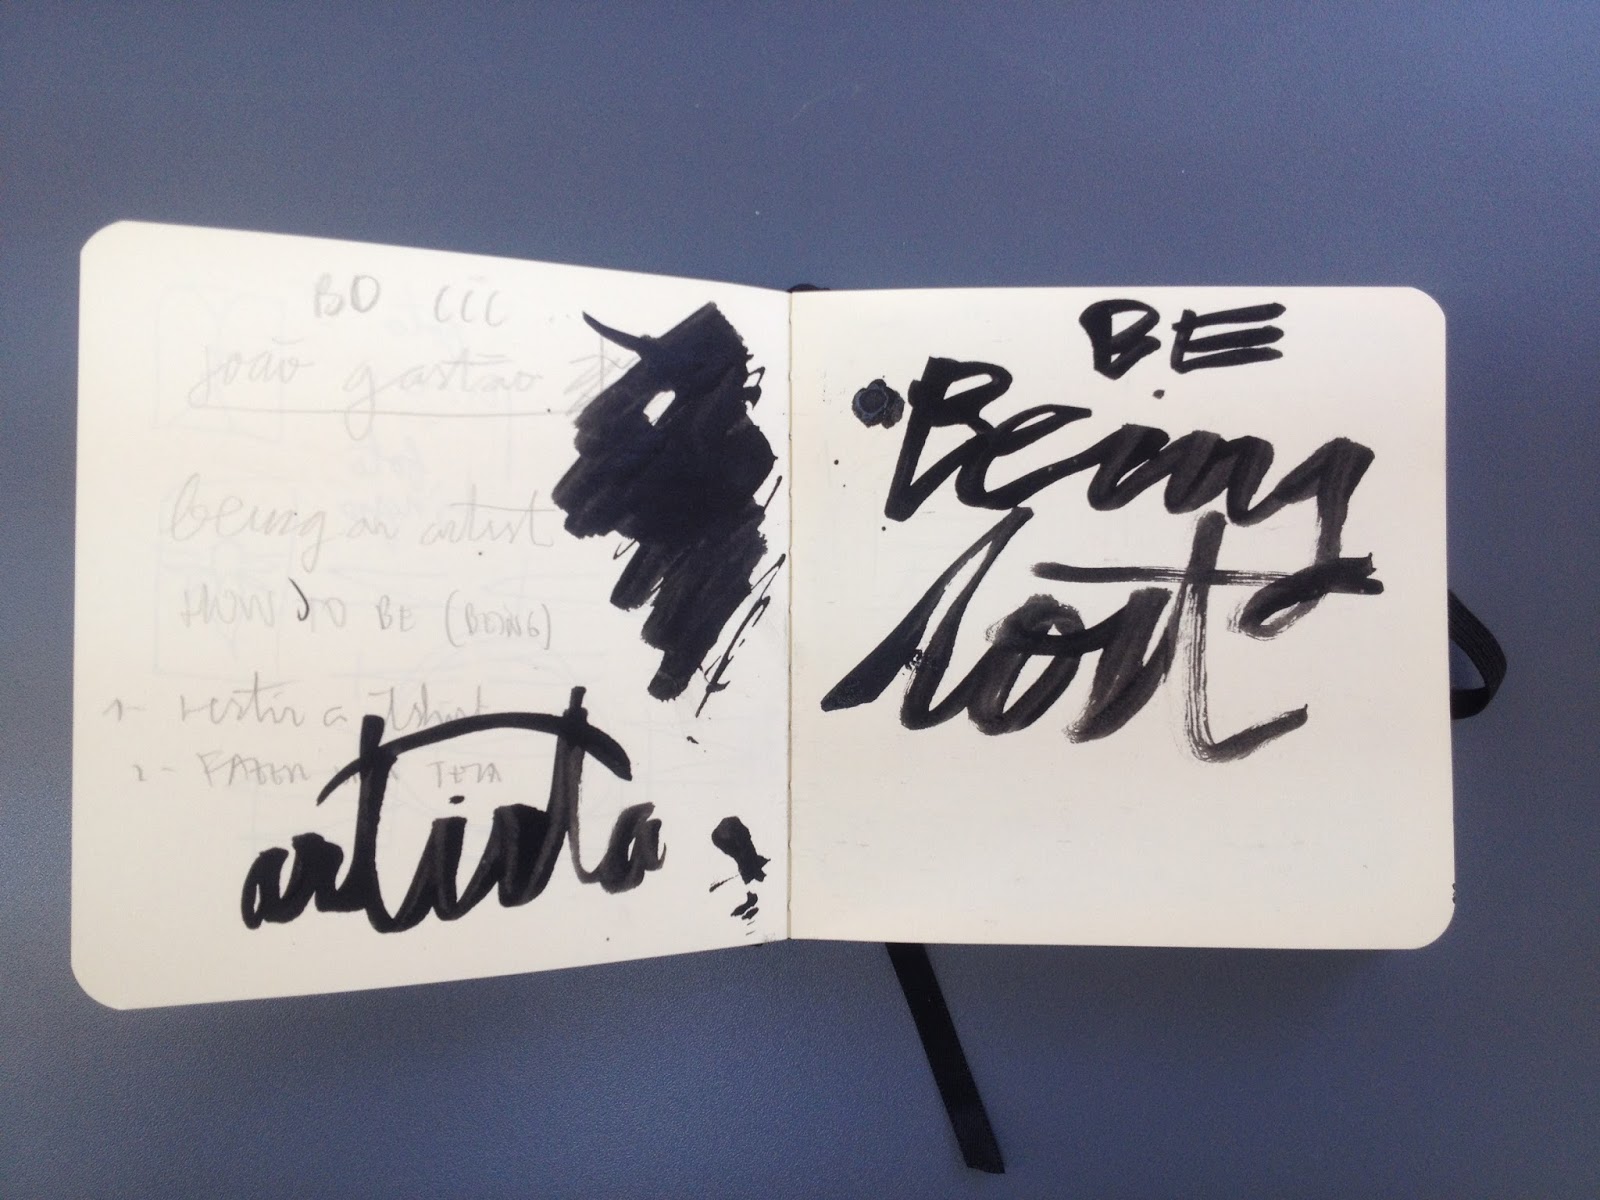 BD CCC ...
joão gastão
being an artist
HOW TO BE (BEING)
1- vestir a tshirt
2- FAZER TELA
artista
BE
Being
lost